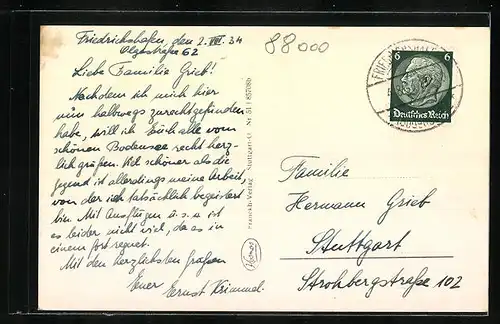 Friedrichshafen, den 2. VII. 34
Olgastraße 62
88000
Liebe Familie Grieb!
Nachdem ich mich hier
nun halbwegs zurechtgefunden
habe, will ich Euch alle vom
schönen Bodensee recht herz-
lich grüßen. Viel schöner als die
Gegend ist allerdings meine Arbeit
von der ich tatsächlich begeistert
bin. Mit Ausflügen u.s.w ist
es leider nicht viel, da es in
einem fort regnet.
Mit den herzlichsten Grüßen
Euer
Ernst Krimmel.
Franckh-Verlag Stuttgart-O
6 6
Deutsches Reich
Familie
Hermann Grieb
Stuttgart
Strohbergstraße 102